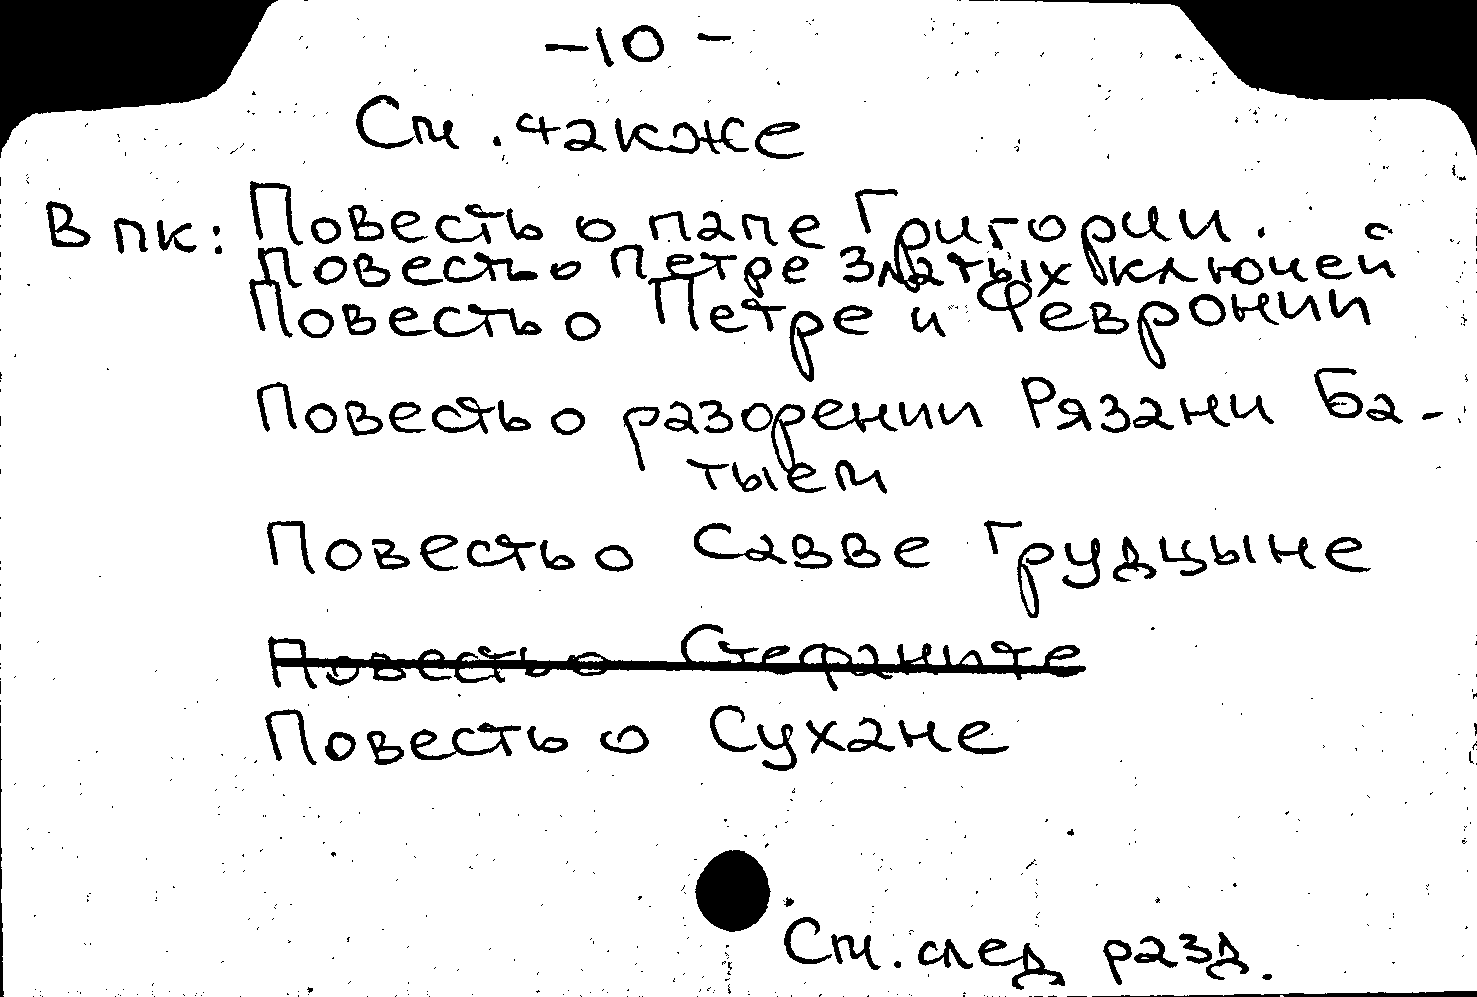 -10-
См. также
В пк: Повесть о папе Григории.
Повесть о Петре Златых ключей
Повесть о Петре и Февронии
Повесть о разорении Рязани Ба-
тыем
Повесть о Савве Грудцыне
Повесть о Стефаните
Повесть о Сухане
См. след разд.